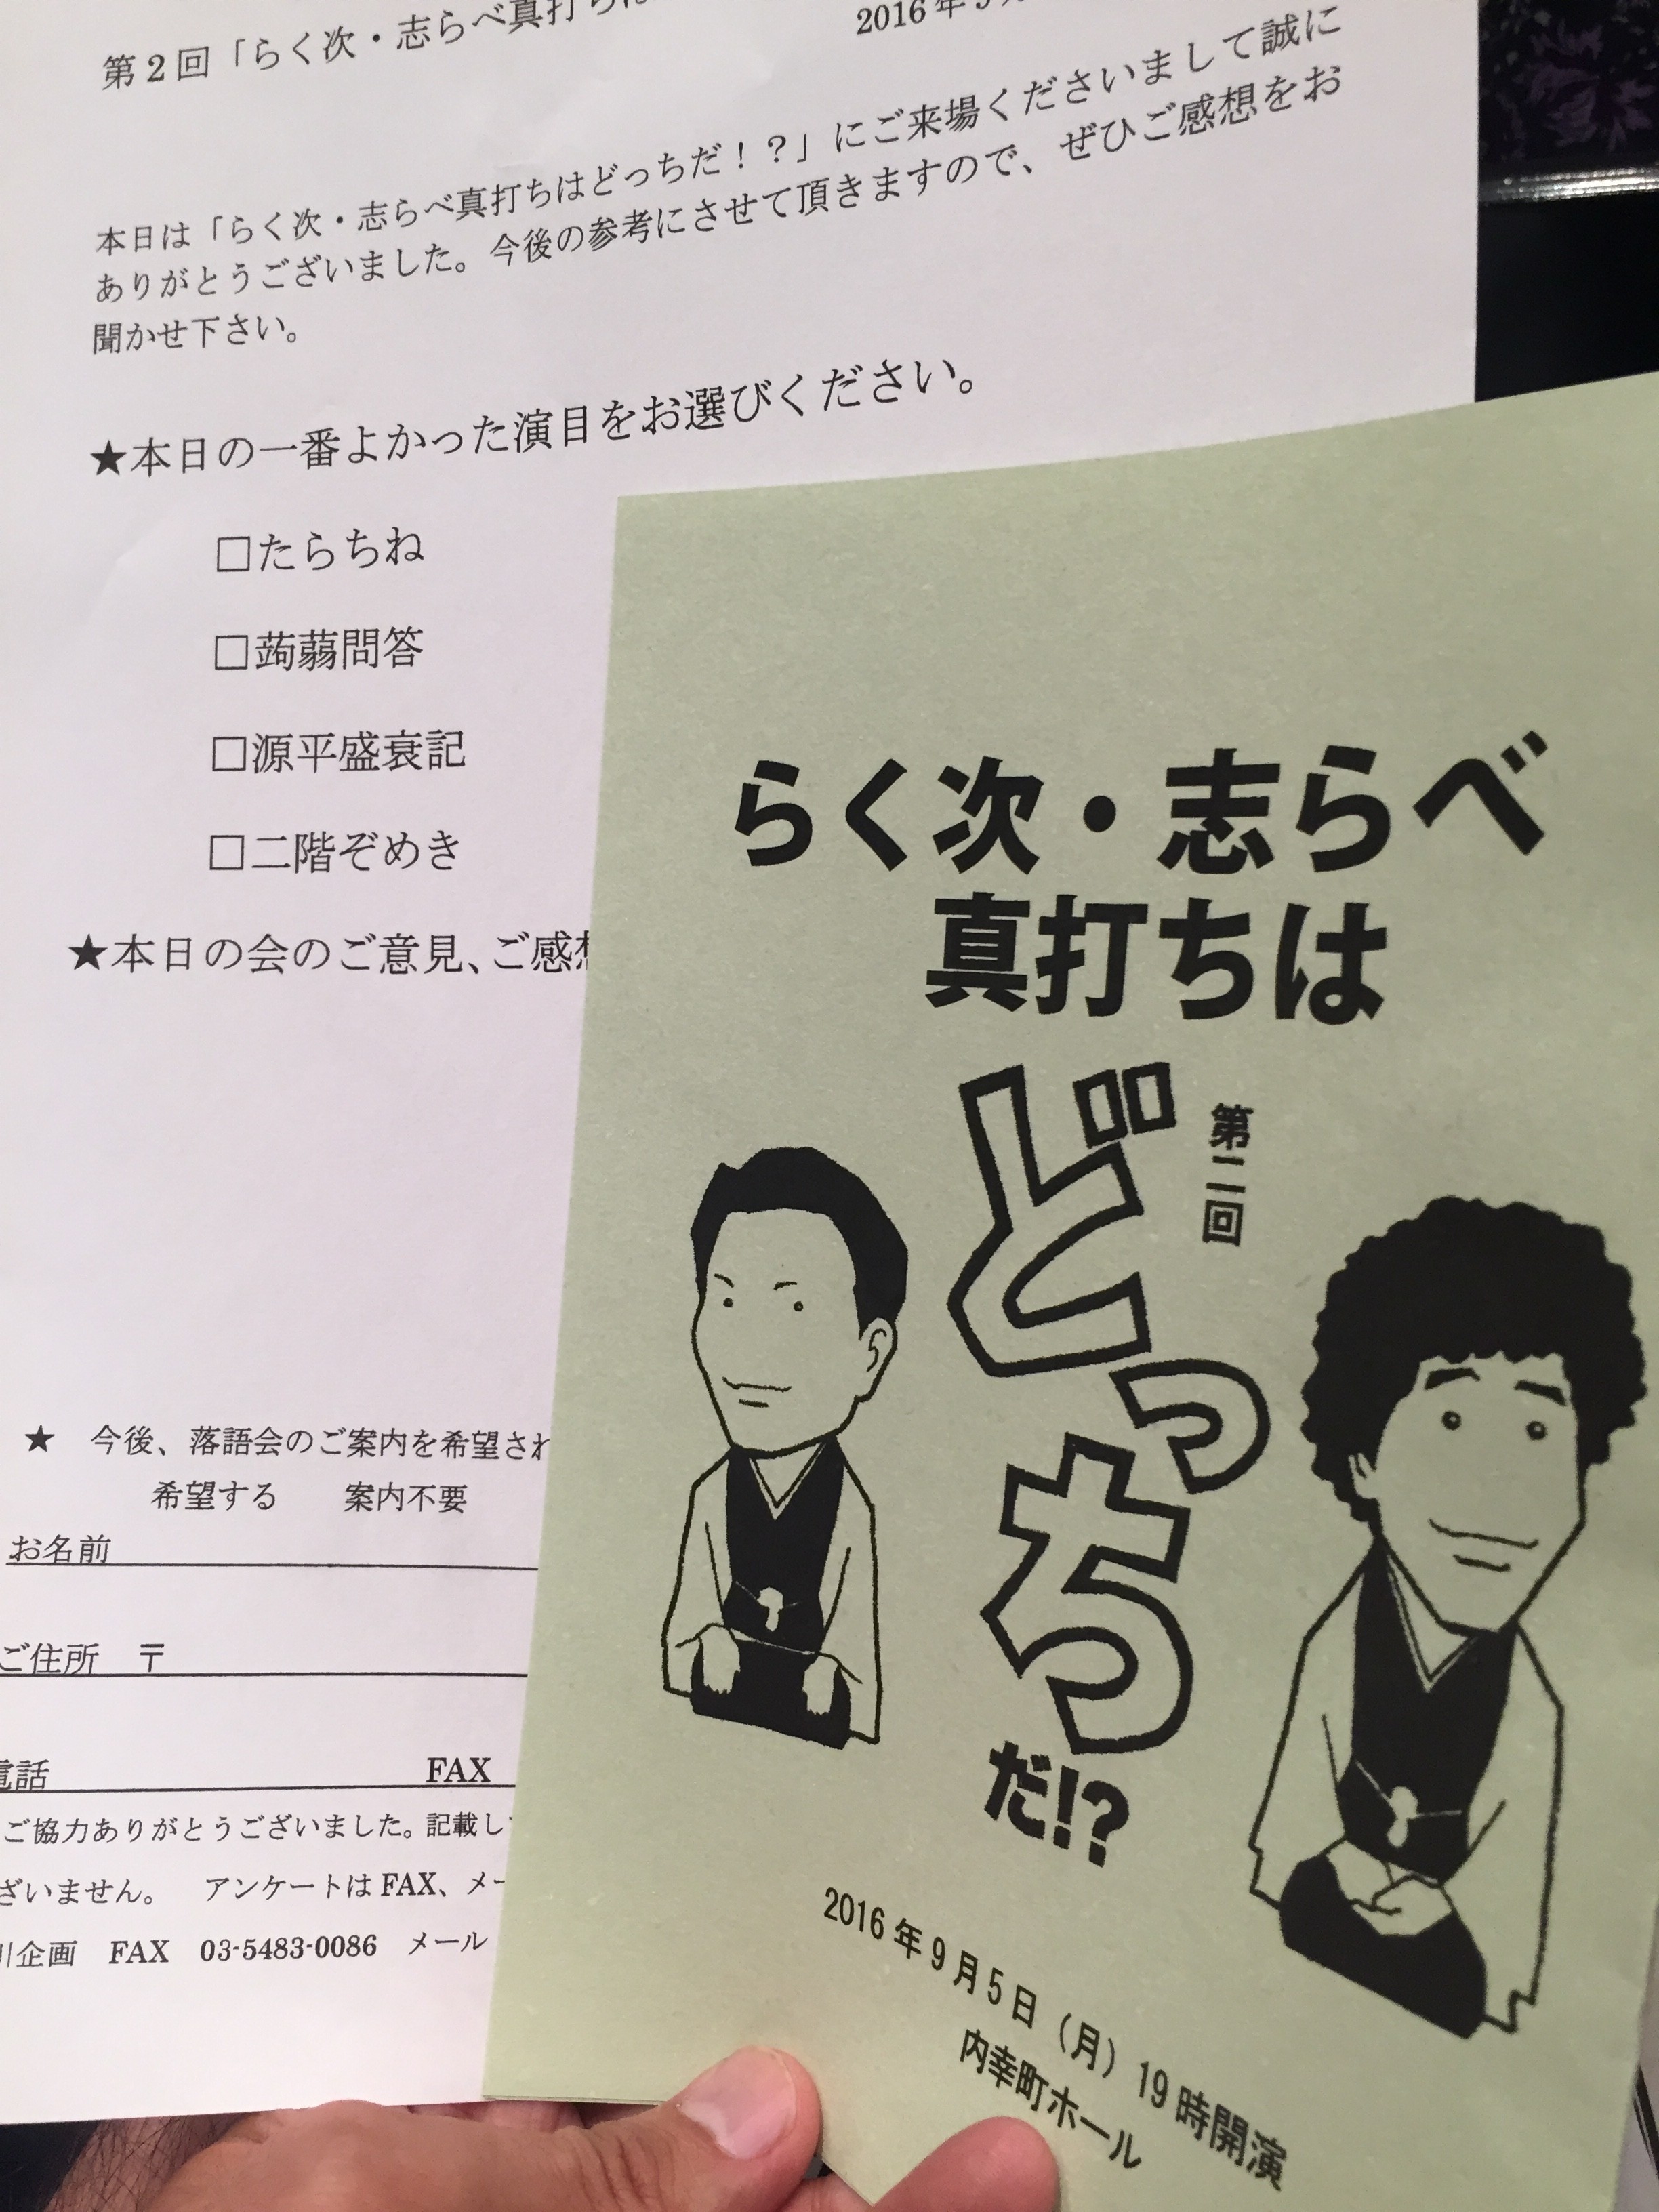 第2回「らく次・志らべ真打ちは
2016年9月
本日は「らく次・志らべ真打ちはどっちだ！？」にご来場くださいまして誠に
ありがとうございました。今後の参考にさせて頂きますので、ぜひご感想をお
聞かせ下さい。
★本日の一番よかった演目をお選びください。
□たらちね
□蒟蒻問答
□源平盛衰記
□二階ぞめき
★本日の会のご意見、ご感想
★ 今後、落語会のご案内を希望され
希望する 案内不要
お名前
ご住所 〒
電話 FAX
ご協力ありがとうございました。記載し
ざいません。 アンケートはFAX、メー
企画 FAX 03-5483-0086 メール
らく次・志らべ
真打ちは
どっち
第二回
だ!?
2016年9月5日（月）19時開演
内幸町ホール